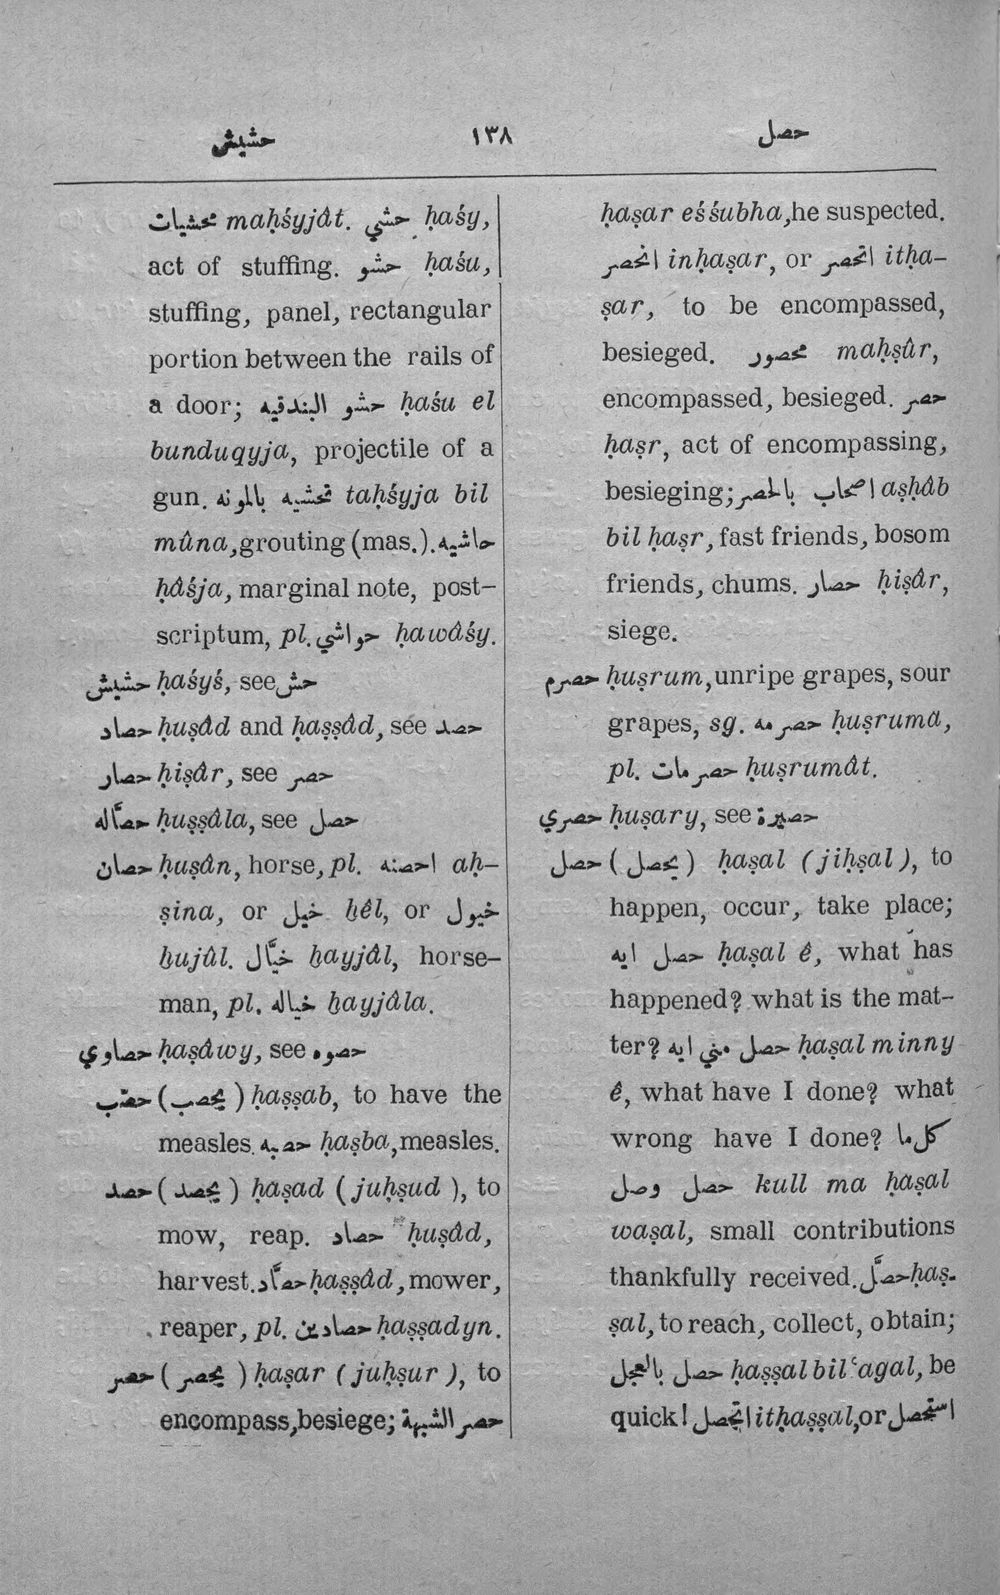 حشيش ١٣٨ حصل
محشيات maḥśyjât. حشي ḥaśy,
act of stuffing. حشو ḥaśu,
stuffing, panel, rectangular
portion between the rails of
a door; حشو البندقيه ḥaśu el
bunduqyja, projectile of a
gun. تحشيه بالمونه taḥśyja bil
mûna, grouting (mas.). حاشيه
ḥâśja, marginal note, post-
scriptum, pl. حواشي ḥawâśy.
حشيش ḥaśyś, see حش
حصاد ḥuṣâd and ḥaṣṣâd, see حصد
حصار ḥiṣâr, see حصر
حصّاله ḥuṣṣâla, see حصل
حصان ḥuṣân, horse, pl. احصنه aḥ-
ṣina, or خيل ḫêl, or خيول
ḫujûl. خيّال ḫayjâl, horse-
man, pl. خياله ḫayjâla.
حصاوي ḥaṣâwy, see حصوه
حصّب (يحصب) ḥaṣṣab, to have the
measles. حصبه ḥaṣba, measles.
حصد (يحصد) ḥaṣad (juḥṣud), to
mow, reap. حصاد ḥuṣâd,
harvest. حصّاد ḥaṣṣâd, mower,
reaper, pl. حصادين ḥaṣṣadyn.
حصر (يحصر) ḥaṣar (juḥṣur), to
encompass, besiege; حصر الشبهة
ḥaṣar eśśubha, he suspected.
انحصر inḥaṣar, or اتحصر itḥa-
ṣar, to be encompassed,
besieged. محصور maḥṣûr,
encompassed, besieged. حصر
ḥaṣr, act of encompassing,
besieging; اصحاب بالحصر aṣḥâb
bil ḥaṣr, fast friends, bosom
friends, chums. حصار ḥiṣâr,
siege.
حصرم ḥuṣrum, unripe grapes, sour
grapes, sg. حصرمه ḥuṣruma,
pl. حصرمات ḥuṣrumât.
حصري ḥuṣary, see حصيرة
حصل (يحصل) ḥaṣal (jiḥṣal), to
happen, occur, take place;
حصل ايه ḥaṣal ê, what has
happened? what is the mat-
ter? حصل مني ايه ḥaṣal minny
ê, what have I done? what
wrong have I done? كل ما
حصل وصل kull ma ḥaṣal
waṣal, small contributions
thankfully received. حصَّل ḥaṣ-
ṣal, to reach, collect, obtain;
حصل بالعجل ḥaṣṣal bil ʿagal, be
quick! اتحصل itḥaṣṣal, or استحصل